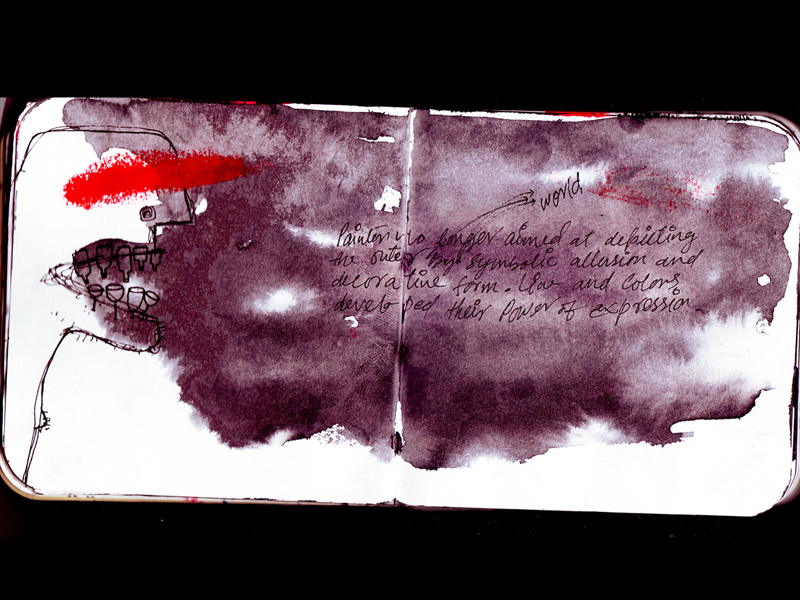 world
Painters no longer aimed at depicting
the outer by symbolic allusion and
decorative form. Line and Colors
developed their Power of expression